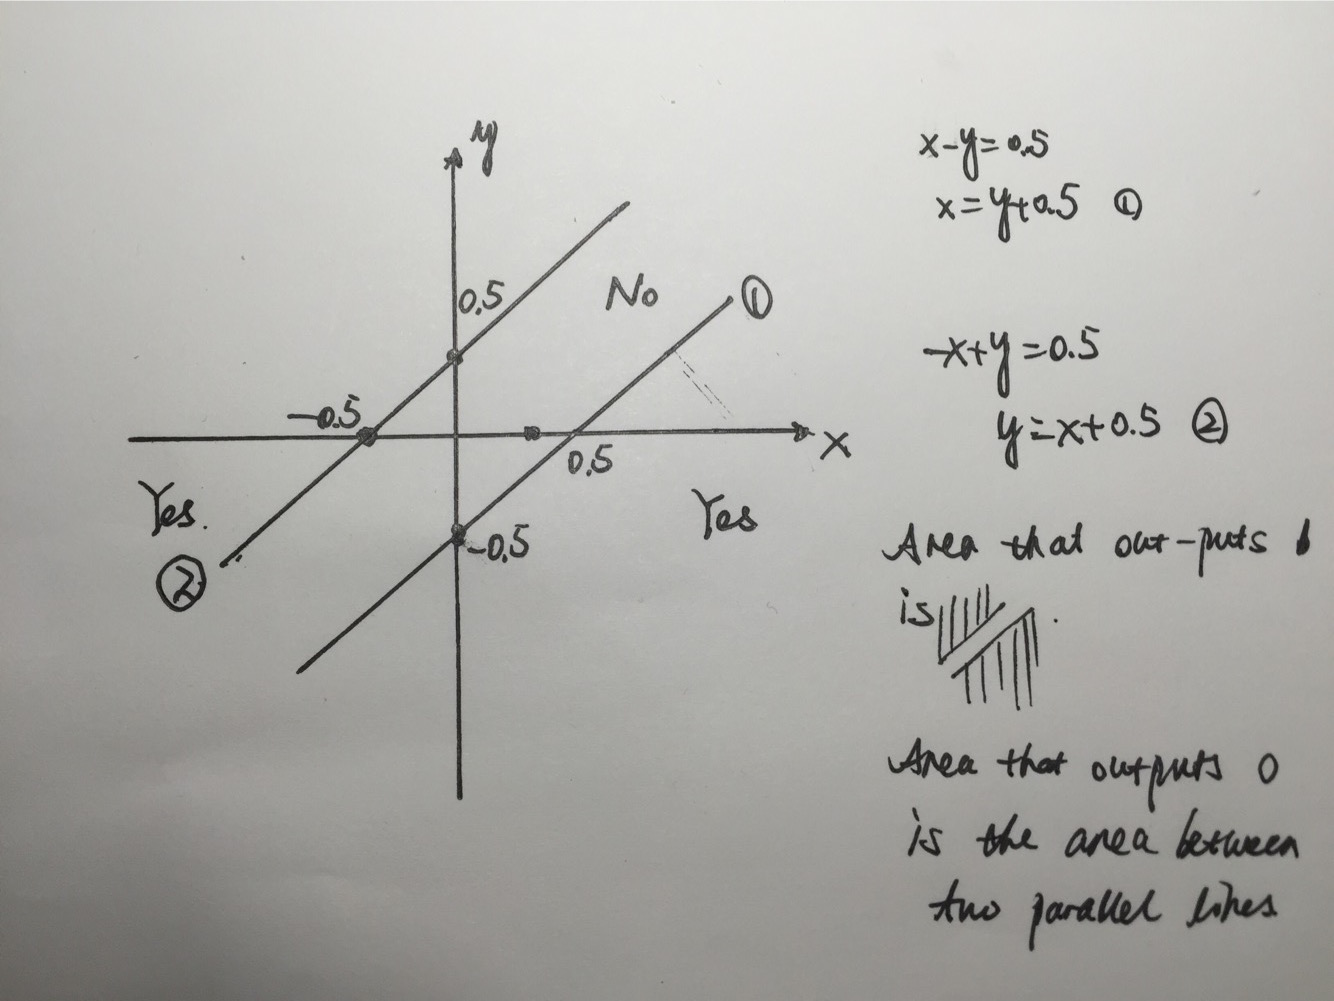 y
0.5
No
①
-0.5
x
0.5
Yes.
Yes
②
-0.5
x-y=0.5
x=y+0.5 ①
-x+y=0.5
y=x+0.5 ②
Area that out-puts
is .
Area that outputs 0
is the area between
two parallel lines